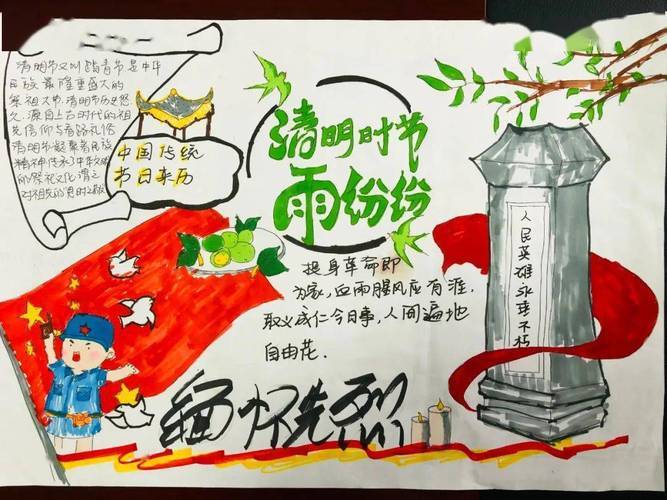 清明节又叫踏青节是中华
民族最隆重盛大的
祭祖大节,清明节历史悠
久,源自上古时代的祖
先信仰与春路礼俗
清明节凝聚着民族
精神传承了中华文明
的祭祀文化
中国传统
节日来历
清明时节
雨纷纷
投身革命即
为家,血雨腥风应有涯.
取义成仁今日事,人间遍地
自由花.
缅怀先烈
人民英雄永垂不朽